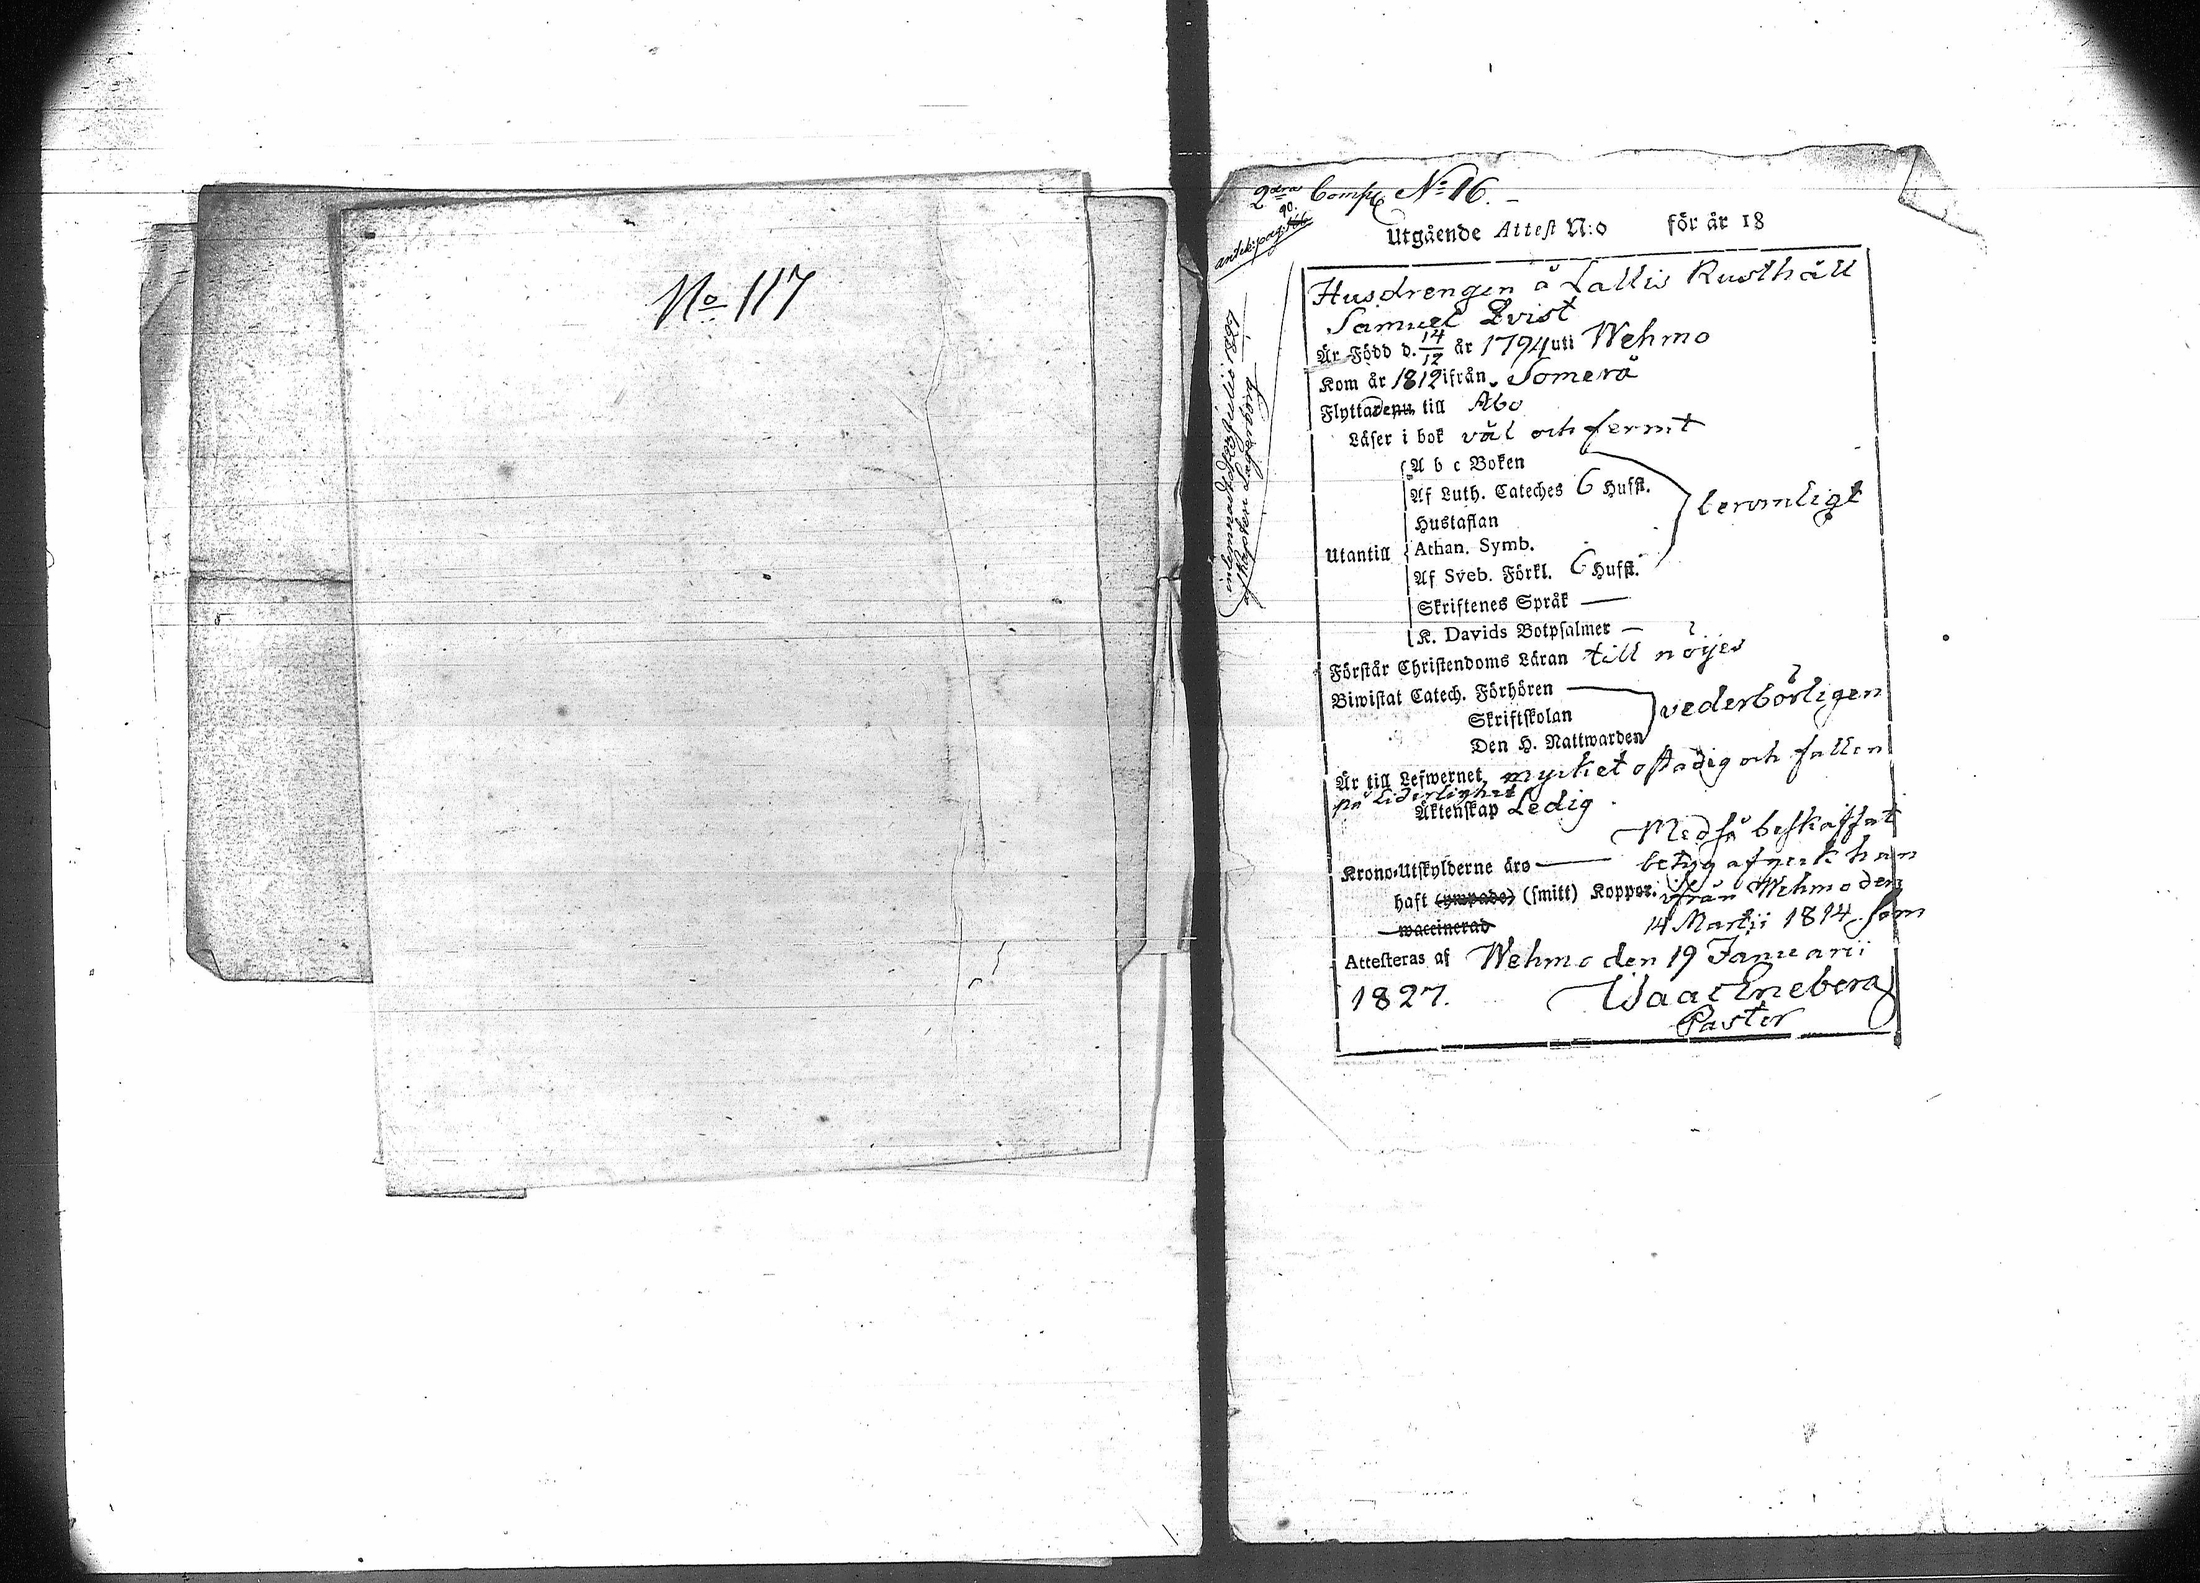 No 117
2dra Comp. No 16.
90.
antek: pag:
inlemnad d. Julii 1827
af Kapten Lagerborg
Utgående Attest N:o för år 18
Husdrengen å Lallis Rusthåll
Samuel Qvist
Är Född d. 14/12 år 1794 uti Wehmo
Kom år 1812 ifrån Somerå
Flyttade till Åbo
Läser i bok väl och fermt
A b c Boken
Af Luth. Cateches 6 Hufst.
berömligt
Hustaflan
Utantill Athan. Symb.
Af Sveb. Förkl. 6 Hufst.
Skriftenes Språk —
K. Davids Botpsalmer —
Förstår Christendoms Läran till nöijes
Biwistat Catech. Förhören
Skriftskolan vederbörligen
Den H. Nattwarden
Är till Lefwernet mycket ostadig och fallen
på liderlighet
Äktenskap Ledig
Med så beskaffat
Krono-Utskylderne äro — betyg afgeck han
haft (ympade) (smitt) Koppor. ifrån Wehmo den
waccinerad 14 Martii 1814 som
Attesteras af Wehmo den 19 Januarii
1827. Isaac Eneberg
Pastor